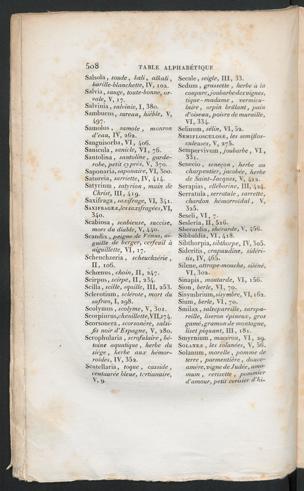 508
TABLE ALPHABÉTIQUE
Salsola, soude, kali, alkali,
barille-blanchette, IV, 102.
Salvia, sauge, toute-bonne, or-
vale, V, 17.
Salvinia, salvinie, I, 380.
Sambucus, sureau, hièble, V,
497.
Samolus, samole, mouron
d'eau, IV, 262.
Sanguisorba, VI, 406.
Sanicula, sanicle, VI, 76.
Santolina, santoline, garde-
robe, petit cyprès, V, 370.
Saponaria, saponaire, VI, 500.
Satureia, sarriette, IV, 444.
Satyrium, satyrion, main de
Christ, III, 419.
Saxifraga, saxifrage, VI, 341.
SAXIFRAGÉES, les saxifragées, VI,
340.
Scabiosa, scabieuse, succise,
mors du diable, V, 440.
Scandix, peigne de Vénus, ai-
guille de berger, cerfeuil à
aiguillette, VI, 17.
Scheuchzeria, scheuchzérie,
II, 106.
Schœnus, choin, II, 247.
Scirpus, scirpe, II, 234.
Scilla, scille, squille, III, 253.
Sclerotium, sclérote, mort du
safran, I, 298.
Scolymus, scolyme, V, 301.
Scorpiurus, chenillette, VII, 274.
Scorzonera, scorzonère, salsi-
fis noir d'Espagne, V, 280.
Scrophularia, scrofulaire, bé-
toine aquatique, herbe du
siège, herbe aux hémor-
roïdes, IV, 352.
Scutellaria, toque, casside,
centaurée bleue, tertianaire,
V, 9.
Secale, seigle, III, 33.
Sedum, grassette, herbe à la
coupure, joubarbe des vignes,
tique-madame, vermicu-
laire, orpin brûlant, pain
d'oiseau, poivre de muraille,
VI, 334.
Selinum, sélin, VI, 52.
SEMIFLOSCULOSÆ, les semiflos-
culeuses, V, 275.
Sempervivum, joubarbe, VI,
331.
Senecio, seneçon, herbe au
charpentier, jacobée, herbe
de Saint-Jacques, V, 422.
Serapias, elléborine, III, 424.
Serratula, serratule, sarrette,
chardon hémorroïdal, V,
325.
Seseli, VI, 7.
Sesleria, II, 526.
Sherardia, shérarde, V, 456.
Sibbaldia, VI, 418.
Sibthorpia, sibthorpe, IV, 305.
Sideritis, crapaudine, sidéri-
tis, IV, 465.
Silene, attrape-mouche, silène,
VI, 302.
Sinapis, moutarde, VI, 156.
Sison, berle, VI, 70.
Sisymbrium, sisymbre, VI, 162.
Sium, berle, VI, 70.
Smilax, salsepareille, sarspa-
reille, liseron épineux, gros
gamé, gramon de montagne,
liset piquant, III, 181.
Smyrnium, maceron, VI, 29.
SOLANÉES, les solanées, V, 56.
Solanum, morelle, pomme de
terre, parmentière, douce-
amère, vigne de Judée, amo-
mum, cerisette, pommier
d'amour, petit cerisier d'hi-